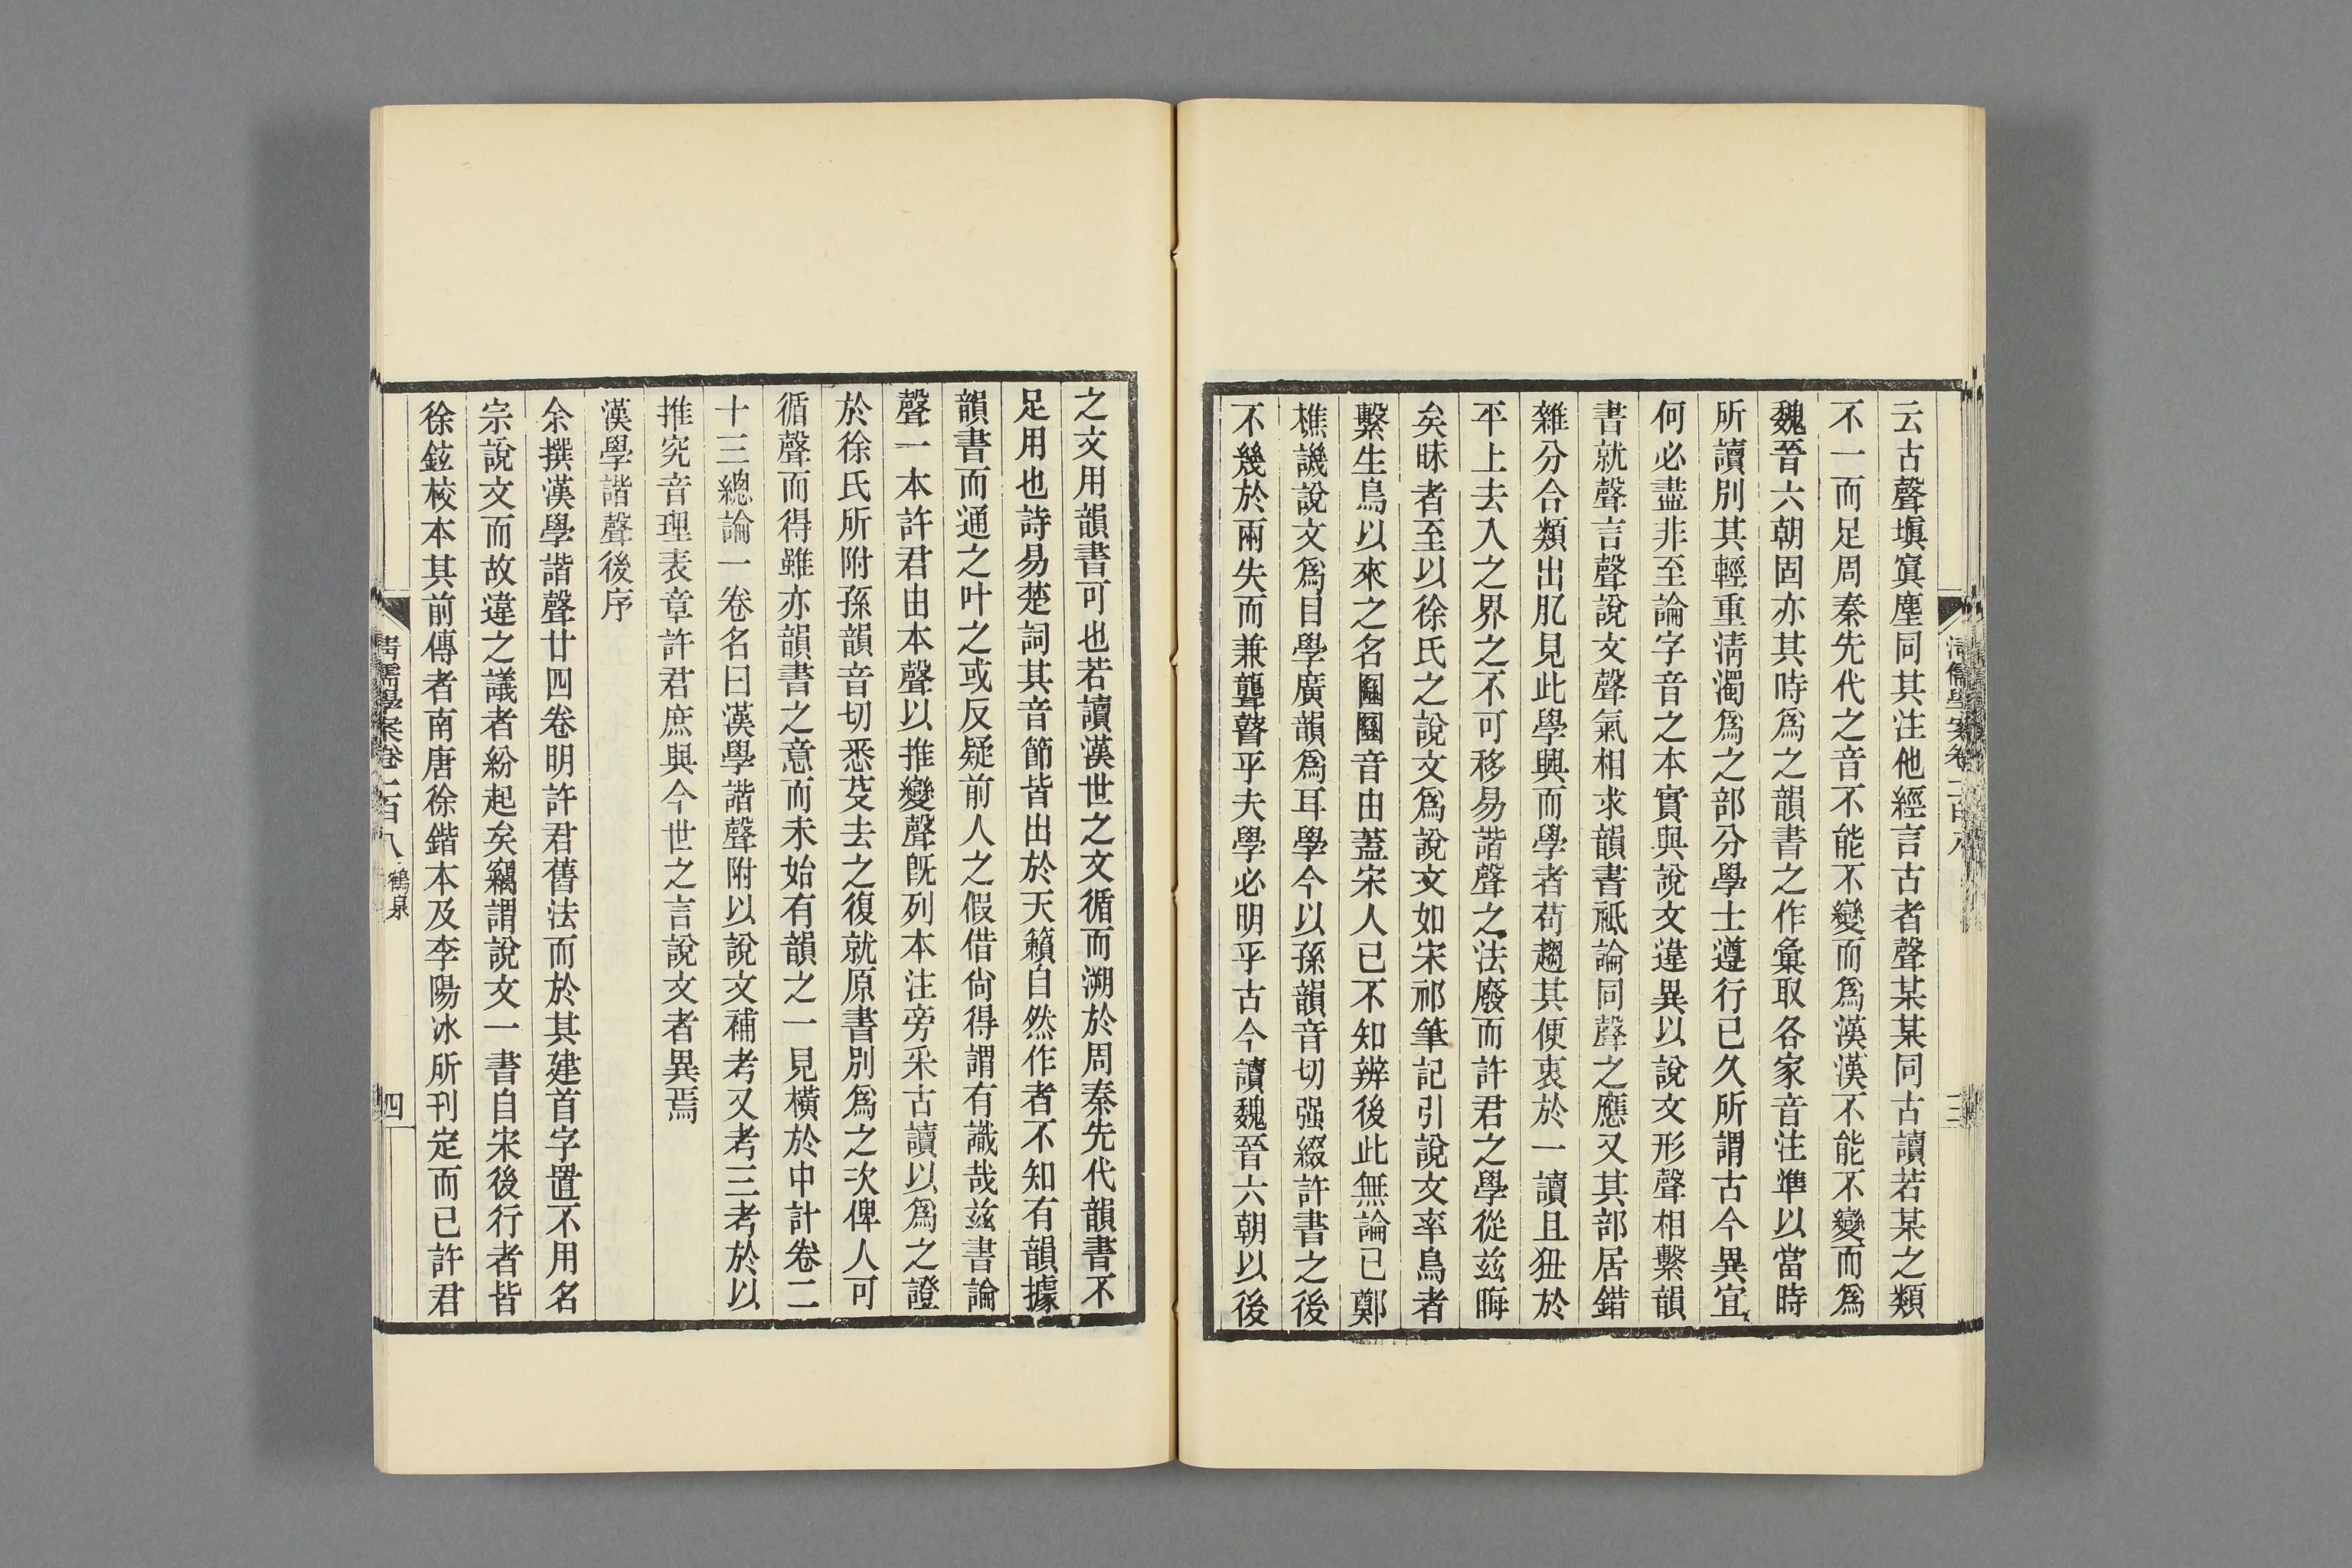 云古聲塡寘塵同其注他經言古者聲某某同古讀若某之類
不一而足周秦先代之音不能不變而爲漢漢不能不變而爲
魏晉六朝固亦其時爲之韻書之作彙取各家音注準以當時
所讀別其輕重淸濁爲之部分學士遵行已久所謂古今異宜
何必盡非至論字音之本實與說文違異以說文形聲相繫韻
書就聲言聲說文聲氣相求韻書祗論同聲之應又其部居錯
雜分合類出肊見此學興而學者苟趨其便衷於一讀且狃於
平上去入之界之不可移易諧聲之法廢而許君之學從茲晦
矣昧者至以徐氏之說文爲說文如宋祁筆記引說文率鳥者
繫生鳥以來之名圝圝音由蓋宋人已不知辨後此無論已鄭
樵譏說文爲目學廣韻爲耳學今以孫韻音切强綴許書之後
不幾於兩失而兼聾瞽乎夫學必明乎古今讀魏晉六朝以後
淸儒學案卷二百八
三
之文用韻書可也若讀漢世之文循而溯於周秦先代韻書不
足用也詩易楚詞其音節皆出於天籟自然作者不知有韻據
韻書而通之叶之或反疑前人之假借尙得謂有識哉茲書論
聲一本許君由本聲以推變聲旣列本注旁采古讀以爲之證
於徐氏所附孫韻音切悉芟去之復就原書別爲之次俾人可
循聲而得雖亦韻書之意而未始有韻之一見橫於中計卷二
十三總論一卷名曰漢學諧聲附以說文補考又考三考於以
推究音理表章許君庶與今世之言說文者異焉
漢學諧聲後序
余撰漢學諧聲廿四卷明許君舊法而於其建首字置不用名
宗說文而故違之議者紛起矣竊謂說文一書自宋後行者皆
徐鉉校本其前傳者南唐徐鍇本及李陽冰所刊定而已許君
淸儒學案卷二百八 鶴泉
四